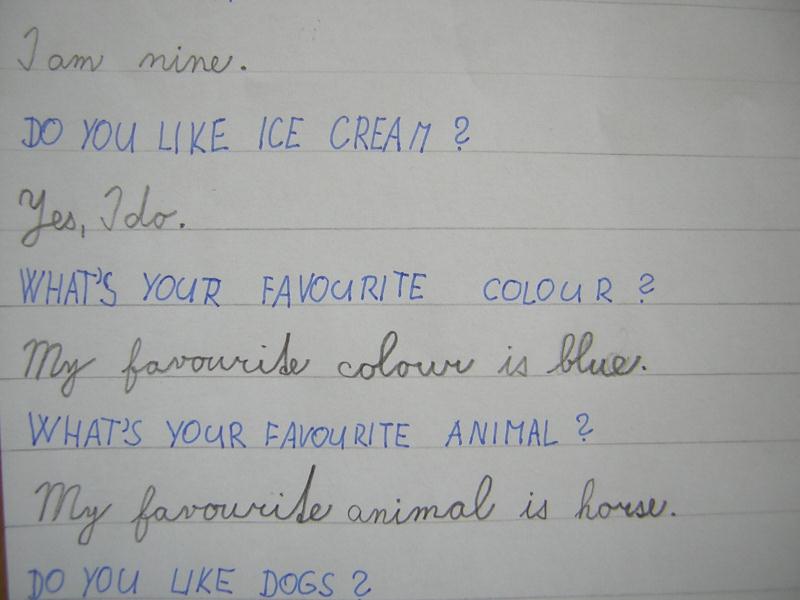 I am nine.
DO YOU LIKE ICE CREAM ?
Yes, I do.
WHAT'S YOUR FAVOURITE COLOUR ?
My favourite colour is blue.
WHAT'S YOUR FAVOURITE ANIMAL ?
My favourite animal is horse.
DO YOU LIKE DOGS ?